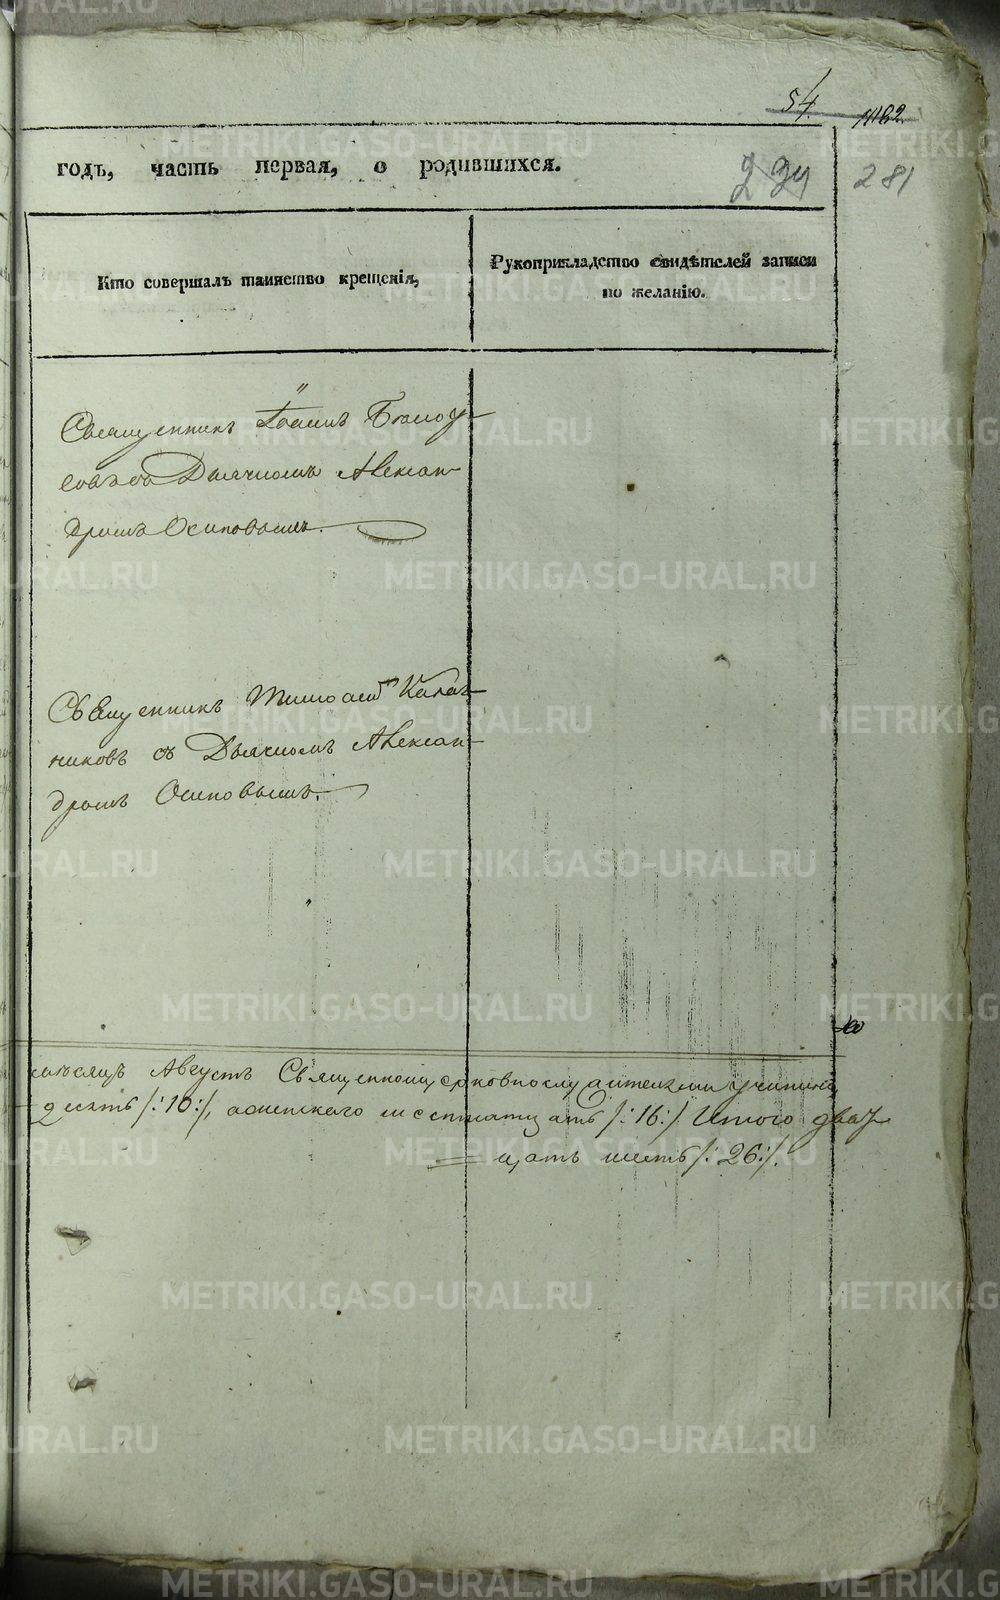 54.
1162.
годъ, часть первая, о родившихся.
234
281
Кто совершалъ таинство крещенія,
Рукоприкладство свидѣтелей записи
по желанію.
Священникъ Іоаннъ Бѣлоу-
совъ съ Дьячкомъ Алексан-
дромъ Осиповымъ.
Священникъ Тимофей
никовъ съ Дьячкомъ Алексан-
дромъ Осиповымъ.
мѣсяцъ Августъ Священноцерковнослужителями учинена
десять /:10:/, а женскаго шестнатцать /:16:/ Итого двад-
цать шесть /:26:/.
METRIKI.GASO-URAL.RU